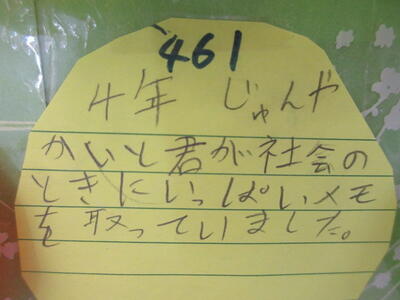 461
4年 じゅんや
かいと君が社会の
ときにいっぱいメモ
を取っていました。